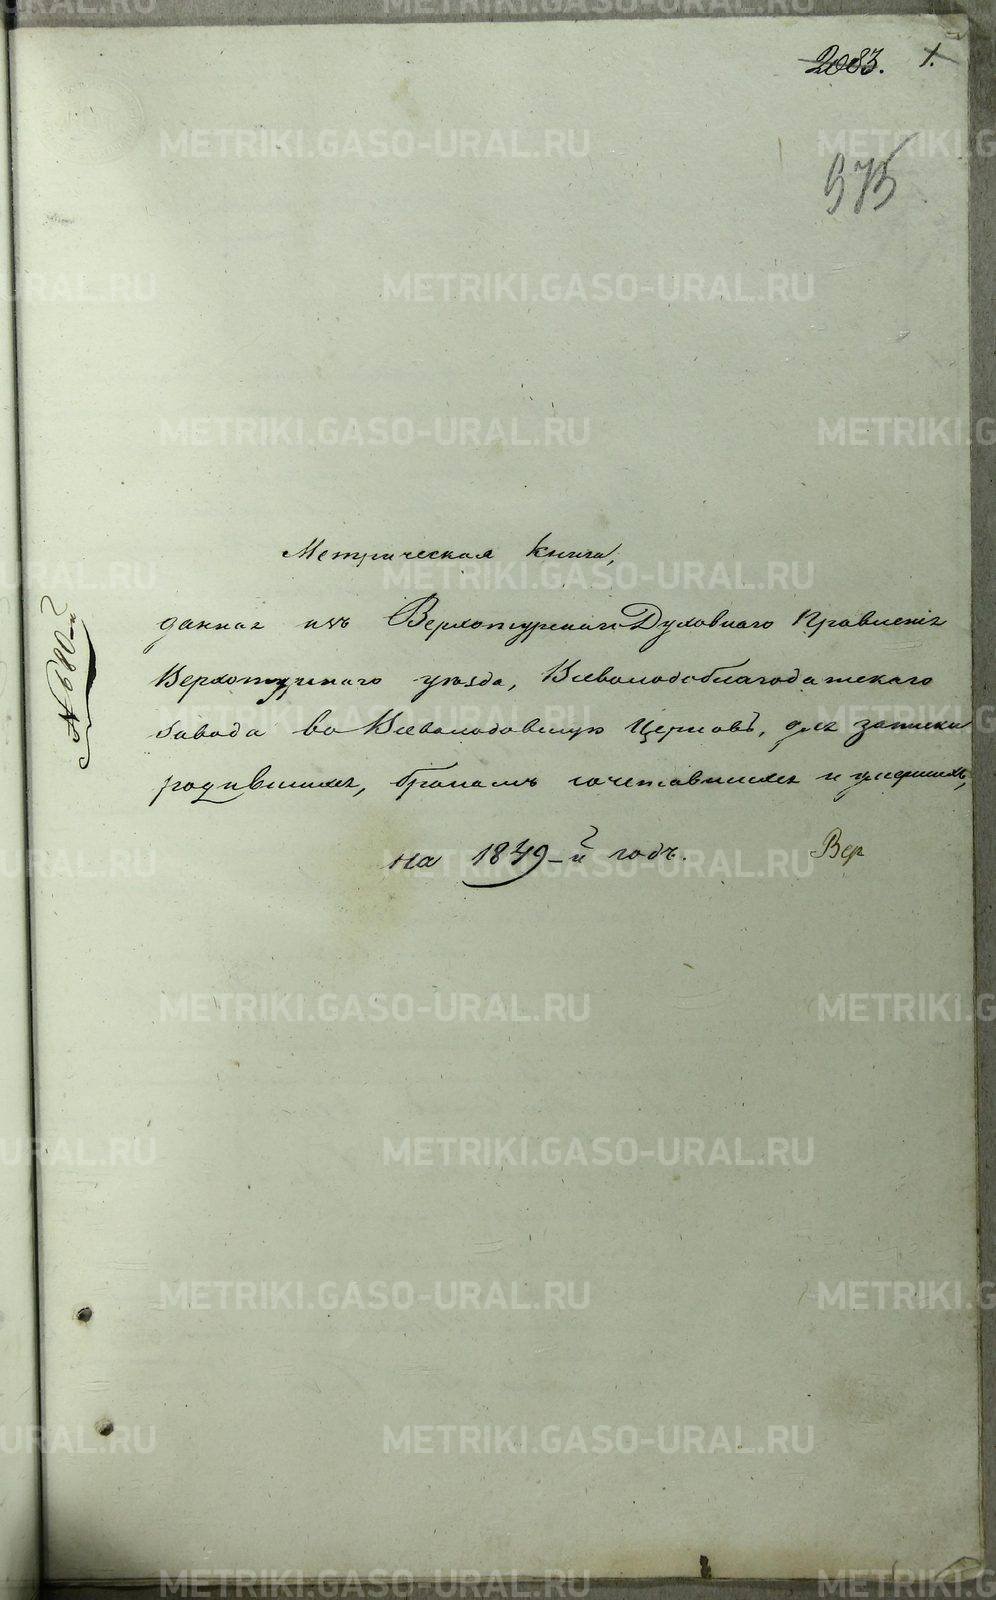 2083. 1.
975
Метрическая книга,
данная изъ Верхотурскаго Духовнаго Правленія
Верхотурскаго уѣзда, Всеволодоблагодатскаго
завода во Всеволодовскую Церковь, для записки
родившихся, бракомъ сочетавшихся и умершихъ,
на 1849-й годъ. Вер
METRIKI.GASO-URAL.RU